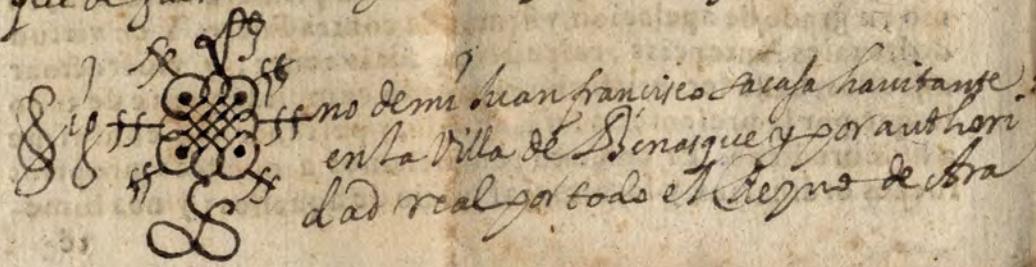 que de
Sig no de mi Juan francisco Sacasa havitante
en la Villa de Benasque y por authori
dad real por todo el Reyno de Ara